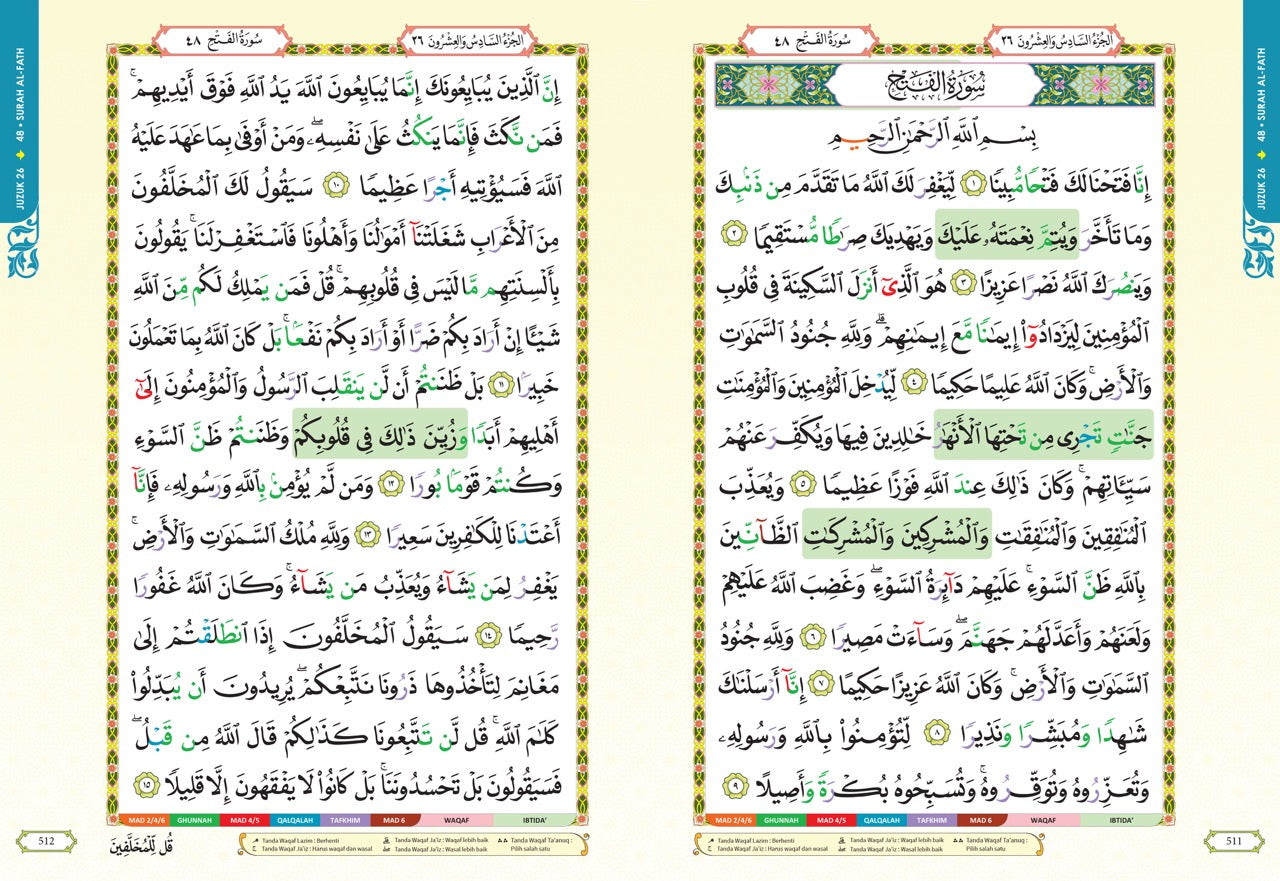 الجُزْءُ السَّادِسُ وَالعِشْرُونَ ٢٦
سُورَةُ الفَتْحِ ٤٨
JUZUK 26 ➔ 48 • SURAH AL-FATH
سُورَةُ الفَتْحِ
بِسْمِ ٱللَّهِ ٱلرَّحْمَٰنِ ٱلرَّحِيمِ
إِنَّا فَتَحْنَا لَكَ فَتْحًا مُّبِينًا ١ لِّيَغْفِرَ لَكَ ٱللَّهُ مَا تَقَدَّمَ مِن ذَنۢبِكَ
وَمَا تَأَخَّرَ وَيُتِمَّ نِعْمَتَهُۥ عَلَيْكَ وَيَهْدِيَكَ صِرَٰطًا مُّسْتَقِيمًا ٢
وَيَنصُرَكَ ٱللَّهُ نَصْرًا عَزِيزًا ٣ هُوَ ٱلَّذِىٓ أَنزَلَ ٱلسَّكِينَةَ فِى قُلُوبِ
ٱلْمُؤْمِنِينَ لِيَزْدَادُوٓا۟ إِيمَٰنًا مَّعَ إِيمَٰنِهِمْ ۗ وَلِلَّهِ جُنُودُ ٱلسَّمَٰوَٰتِ
وَٱلْأَرْضِ ۚ وَكَانَ ٱللَّهُ عَلِيمًا حَكِيمًا ٤ لِّيُدْخِلَ ٱلْمُؤْمِنِينَ وَٱلْمُؤْمِنَٰتِ
جَنَّٰتٍ تَجْرِى مِن تَحْتِهَا ٱلْأَنْهَٰرُ خَٰلِدِينَ فِيهَا وَيُكَفِّرَ عَنْهُمْ
سَيِّـَٔاتِهِمْ ۚ وَكَانَ ذَٰلِكَ عِندَ ٱللَّهِ فَوْزًا عَظِيمًا ٥ وَيُعَذِّبَ
ٱلْمُنَٰفِقِينَ وَٱلْمُنَٰفِقَٰتِ وَٱلْمُشْرِكِينَ وَٱلْمُشْرِكَٰتِ ٱلظَّآنِّينَ
بِٱللَّهِ ظَنَّ ٱلسَّوْءِ ۚ عَلَيْهِمْ دَآئِرَةُ ٱلسَّوْءِ ۖ وَغَضِبَ ٱللَّهُ عَلَيْهِمْ
وَلَعَنَهُمْ وَأَعَدَّ لَهُمْ جَهَنَّمَ ۖ وَسَآءَتْ مَصِيرًا ٦ وَلِلَّهِ جُنُودُ
ٱلسَّمَٰوَٰتِ وَٱلْأَرْضِ ۚ وَكَانَ ٱللَّهُ عَزِيزًا حَكِيمًا ٧ إِنَّآ أَرْسَلْنَٰكَ
شَٰهِدًا وَمُبَشِّرًا وَنَذِيرًا ٨ لِّتُؤْمِنُوا۟ بِٱللَّهِ وَرَسُولِهِۦ
وَتُعَزِّرُوهُ وَتُوَقِّرُوهُ ۚ وَتُسَبِّحُوهُ بُكْرَةً وَأَصِيلًا ٩
MAD 2/4/6 GHUNNAH MAD 4/5 QALQALAH TAFKHIM MAD 6 WAQAF IBTIDA'
Tanda Waqaf Lazim : Berhenti Tanda Waqaf Ja'iz : Waqaf lebih baik Tanda Waqaf Ta'anuq :
Tanda Waqaf Ja'iz : Harus waqaf dan wasal Tanda Waqaf Ja'iz : Wasal lebih baik Pilih salah satu
511
الجُزْءُ السَّادِسُ وَالعِشْرُونَ ٢٦
سُورَةُ الفَتْحِ ٤٨
JUZUK 26 ➔ 48 • SURAH AL-FATH
إِنَّ ٱلَّذِينَ يُبَايِعُونَكَ إِنَّمَا يُبَايِعُونَ ٱللَّهَ يَدُ ٱللَّهِ فَوْقَ أَيْدِيهِمْ ۚ
فَمَن نَّكَثَ فَإِنَّمَا يَنكُثُ عَلَىٰ نَفْسِهِۦ ۖ وَمَنْ أَوْفَىٰ بِمَا عَٰهَدَ عَلَيْهُ
ٱللَّهَ فَسَيُؤْتِيهِ أَجْرًا عَظِيمًا ١٠ سَيَقُولُ لَكَ ٱلْمُخَلَّفُونَ
مِنَ ٱلْأَعْرَابِ شَغَلَتْنَآ أَمْوَٰلُنَا وَأَهْلُونَا فَٱسْتَغْفِرْ لَنَا ۚ يَقُولُونَ
بِأَلْسِنَتِهِم مَّا لَيْسَ فِى قُلُوبِهِمْ ۚ قُلْ فَمَن يَمْلِكُ لَكُم مِّنَ ٱللَّهِ
شَيْـًٔا إِنْ أَرَادَ بِكُمْ ضَرًّا أَوْ أَرَادَ بِكُمْ نَفْعًۢا ۚ بَلْ كَانَ ٱللَّهُ بِمَا تَعْمَلُونَ
خَبِيرًۢا ١١ بَلْ ظَنَنتُمْ أَن لَّن يَنقَلِبَ ٱلرَّسُولُ وَٱلْمُؤْمِنُونَ إِلَىٰٓ
أَهْلِيهِمْ أَبَدًا وَزُيِّنَ ذَٰلِكَ فِى قُلُوبِكُمْ وَظَنَنتُمْ ظَنَّ ٱلسَّوْءِ
وَكُنتُمْ قَوْمًۢا بُورًا ١٢ وَمَن لَّمْ يُؤْمِنۢ بِٱللَّهِ وَرَسُولِهِۦ فَإِنَّآ
أَعْتَدْنَا لِلْكَٰفِرِينَ سَعِيرًا ١٣ وَلِلَّهِ مُلْكُ ٱلسَّمَٰوَٰتِ وَٱلْأَرْضِ ۚ
يَغْفِرُ لِمَن يَشَآءُ وَيُعَذِّبُ مَن يَشَآءُ ۚ وَكَانَ ٱللَّهُ غَفُورًا
رَّحِيمًا ١٤ سَيَقُولُ ٱلْمُخَلَّفُونَ إِذَا ٱنطَلَقْتُمْ إِلَىٰ
مَغَانِمَ لِتَأْخُذُوهَا ذَرُونَا نَتَّبِعْكُمْ ۖ يُرِيدُونَ أَن يُبَدِّلُوا۟
كَلَٰمَ ٱللَّهِ ۚ قُل لَّن تَتَّبِعُونَا كَذَٰلِكُمْ قَالَ ٱللَّهُ مِن قَبْلُ ۖ
فَسَيَقُولُونَ بَلْ تَحْسُدُونَنَا ۚ بَلْ كَانُوا۟ لَا يَفْقَهُونَ إِلَّا قَلِيلًا ١٥
MAD 2/4/6 GHUNNAH MAD 4/5 QALQALAH TAFKHIM MAD 6 WAQAF IBTIDA'
Tanda Waqaf Lazim : Berhenti Tanda Waqaf Ja'iz : Waqaf lebih baik Tanda Waqaf Ta'anuq :
Tanda Waqaf Ja'iz : Harus waqaf dan wasal Tanda Waqaf Ja'iz : Wasal lebih baik Pilih salah satu
قُل لِّلْمُخَلَّفِينَ
512